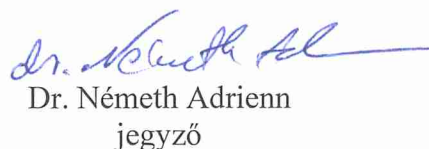 dr. Németh Ad
Dr. Németh Adrienn
jegyző